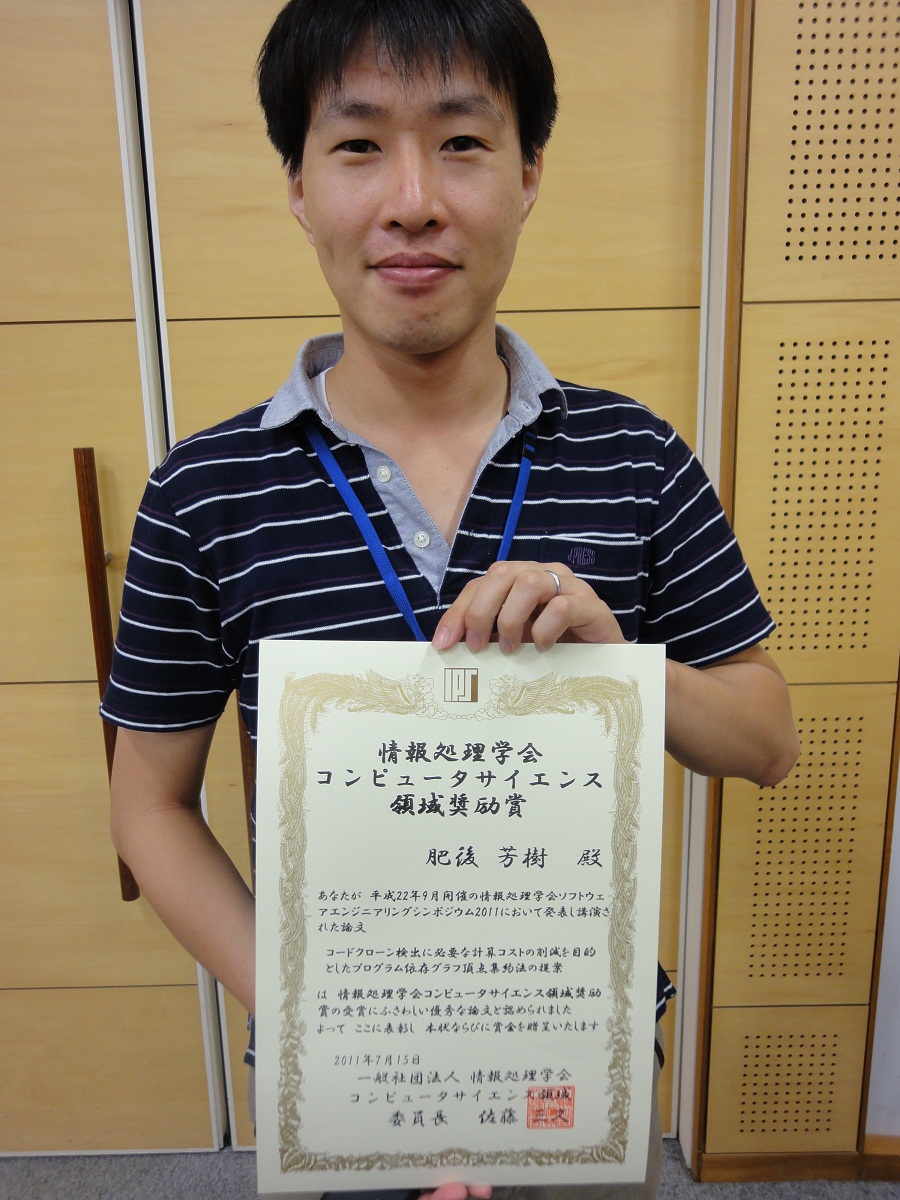 J.PRESS
IPSJ
情報処理学会
コンピュータサイエンス
領域奨励賞
肥後 芳樹 殿
あなたが 平成22年9月開催の情報処理学会ソフトウェ
アエンジニアリングシンポジウム2011において発表し講演さ
れた論文
コードクローン検出に必要な計算コストの削減を目的
としたプログラム依存グラフ頂点集約法の提案
は 情報処理学会コンピュータサイエンス領域奨励
賞の受賞にふさわしい優秀な論文と認められました
よって ここに表彰し 本状ならびに賞金を贈呈いたします
2011年7月15日
一般社団法人 情報処理学会
コンピュータサイエンス領域
委員長 佐藤 三久